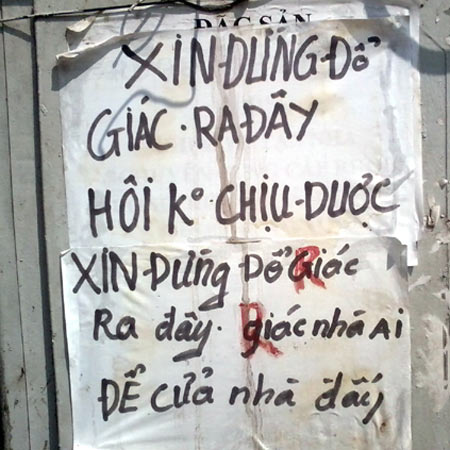 ĐẶC SẢN
XIN ĐỪNG ĐỔ
GIÁC. RA ĐÂY
HÔI Kº CHỊU ĐƯỢC
XIN ĐỪNG ĐỔ Giác R
Ra đây. giác nhà Ai R
ĐỂ CỬA nhà đấy